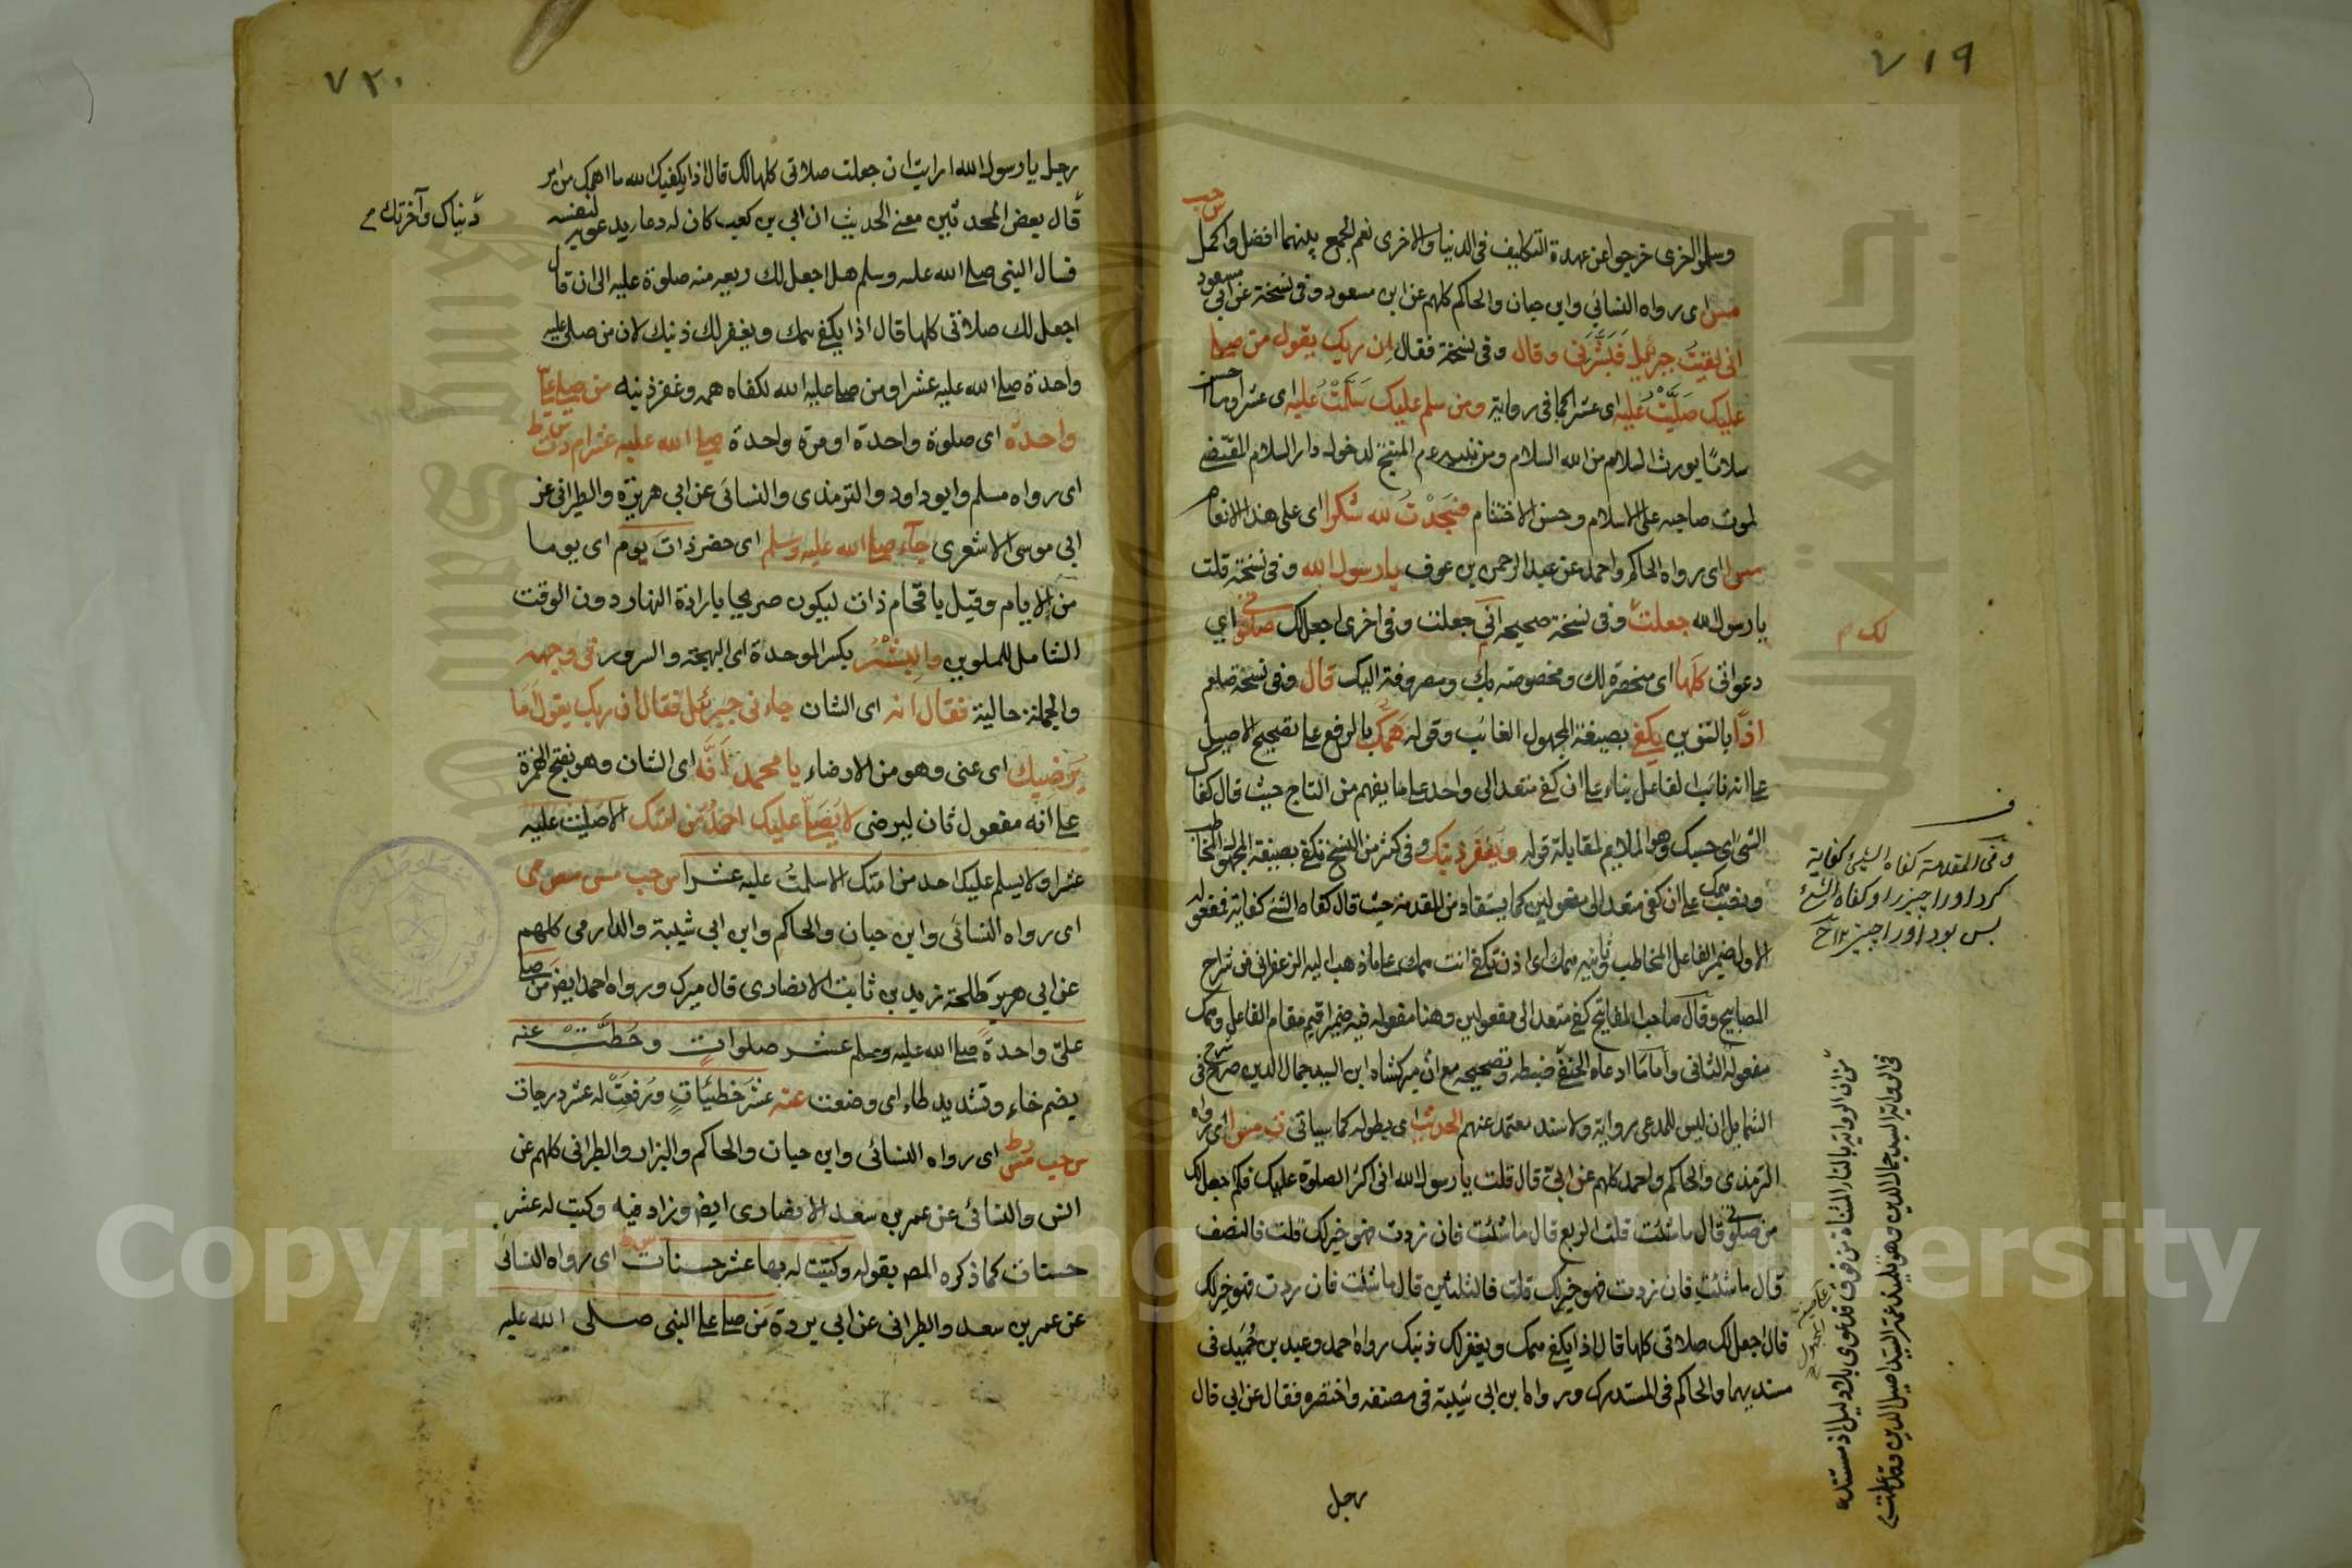 ٧١٩
وسلموا اخرى خرجوا عن عهدة التكليف فى الدنيا والاخرى نعم الجمع بينهما افضل واكمل س حب
مس اى رواه النسائي وابن حبان والحاكم كلهم عن ابن مسعود وفى نسخة عن ابي مسعود
انى لقيت جبرئيل فبشرنى وقال وفى نسخة فقال ان ربك يقول من صلى
عليك صليت عليه اى عشرا كما فى رواية ومن سلم عليك سلمت عليه اى عشرا
سلاما يورث السلام من الله السلام المنتج لدخول دار السلام المقتضى
لموت صاحبه على الاسلام وحسن الاختتام فسجدت لله شكرا اى على هذا الانعام
مس ا اى رواه الحاكم واحمد عن عبد الرحمن بن عوف يا رسول الله وفى نسخة قلت
يا رسول الله جعلت وفى نسخة صحيحه انى جعلت وفى اخرى اجعل لك صلاتى اي
لك
دعواتى كلها اى منحصرة لك ومخصوصة بك ومصروفة اليك قال وفى نسخة صلعم
اذا بالتنوين يكفى بصيغة المجهول الغائب وقوله همك بالرفع على تصحيح الاصيل
على انه نائب الفاعل بناء على ان كفى متعد الى واحد على ما يفهم من التاج حيث قال كفاك
الشئ اى حسبك وهو الملايم لمقابلة قوله ويغفر ذنبك وفى اكثر من النسخ تكفى بصيغة المجهول المخاطب
ونصب همك على ان كفى متعد الى مفعولين كما يستفاد من المقدمة حيث قال كفاه الشئ كفاية فمفعوله
الاول ضمير الفاعل المخاطب وثانيه همك اى اذن تكفى انت همك على ما ذهب اليه الزعفرانى من شراح
المصابيح وقال صاحب المفاتيح كفى متعد الى مفعولين وهنا مفعوله فيه ضمير اقيم مقام الفاعل وهمك
مفعوله الثانى واما ما ادعاه الحنفى ضبطه وتصحيحه مع ان ميركشاه ابن السيد جمال الدين صرح فى
الشمايل ان ليس للمدعى رواية ولا سند معتمد عنهم الحديث اى بطوله كما سياتى ت مس ا اى رواه
الترمذى والحاكم واحمد كلهم عن ابىّ قال قلت يا رسول الله انى اكثر الصلوة عليك فكم اجعل لك
من صلوتى قال ما شئت قلت الربع قال ما شئت فان زدت فهو خير لك قلت فالنصف
قال ما شئت فان زدت فهو خير لك قلت فالثلثين قال ما شئت فان زدت فهو خير لك
قال اجعل لك صلاتى كلها قال اذا يكفى همك ويغفر لك ذنبك رواه احمد وعبد بن حميد فى
مسنديهما والحاكم فى المستدرك ورواه ابن ابى شيبة فى مصنفه واختصره فقال عن ابي قال
رجل
وفى المقدمة كفاه الشئ كفاية
كرد او را چيز را وكفاه الشئ
بس بود او را چيز
من ان الرواية بالتاء المثناة من فوق فدعوى بلا دليل اذ مستنده
فى الرواية السيد جمال الدين وهو تلميذ عمه السيد اصيل الدين وقد علمت
٧٢٠
رجل يا رسول الله ارايت ان جعلت صلاتى كلها لك قال اذا يكفيك الله ما اهمك من امر
دنياك وآخرتك
قال بعض المحدثين معنى الحديث ان ابي بن كعب كان له دعاء يدعو به لنفسه
فسال النبى صلى الله عليه وسلم هل اجعل لك ربعه منه صلوة عليه الى ان قال
اجعل لك صلاتى كلها قال اذا يكفى همك ويغفر لك ذنبك لان من صلى عليه
واحدة صلى الله عليه عشرا ومن صلى عليه الله لكفاه همه وغفر ذنبه من صلى علىّ
واحدة اى صلوة واحدة او مرة واحدة صلى الله عليه عشرا م د ت س ط
اى رواه مسلم وابو داود والترمذى والنسائى عن ابي هريرة والطبرانى عن
ابى موسى الاشعرى جاء صلى الله عليه وسلم اى حضر ذات يوم اى يوما
من الايام وقيل باقحام ذات ليكون صريحا بارادة النهار دون الوقت
الشامل للملوين والبشر بكسر الموحدة اى البهجة والسرور فى وجهه
والجملة حالية فقال انه اى الشان جاءنى جبرئيل فقال ان ربك يقول اما
يرضيك اى عنى وهو من الارضاء يا محمد انه اى الشان وهو بفتح الهمزة
على انه مفعول ثان ليرضى لا يصلى عليك احد من امتك الا صليت عليه
عشرا ولا يسلم عليك احد من امتك الا سلمت عليه عشرا س حب مس مص مى
اى رواه النسائى وابن حبان والحاكم وابن ابى شيبة والدارمى كلهم
عن ابي طلحة زيد بن ثابت الانصارى قال ميرك ورواه احمد ايضا من صلى
علىّ واحدة صلى الله عليه وسلم عشر صلوات وحطت عنه
بضم حاء وتشديد طاء اى وضعت عنه عشر خطيئات ورفعت له عشر درجات
س حب مس ر ط اى رواه النسائى وابن حبان والحاكم والبزار والطبرانى كلهم عن
انس والنسائى عن عمر بن سعد الانصارى ايضا وزاد فيه وكتب له عشر
حسنات كما ذكره المصـ بقوله وكتبت له بها عشر حسنات س ط اى رواه النسائى
عن عمر بن سعد والطبرانى عن ابى بردة من صلى على النبى صلى الله عليه
Copyright © King Saud University